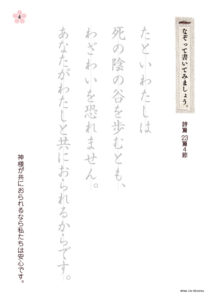 なぞって書いてみましょう。
詩篇 23篇4節
たといわたしは
死の陰の谷を歩むとも、
わざわいを恐れません。
あなたがわたしと共におられるからです。
神様が共におられるなら私たちは安心です。